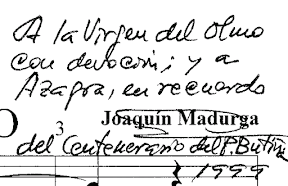 A la Virgen del Olmo
con devoción; y a
Azagra, en recuerdo
3
Joaquín Madurga
del Centenario del P. Butiña
1999